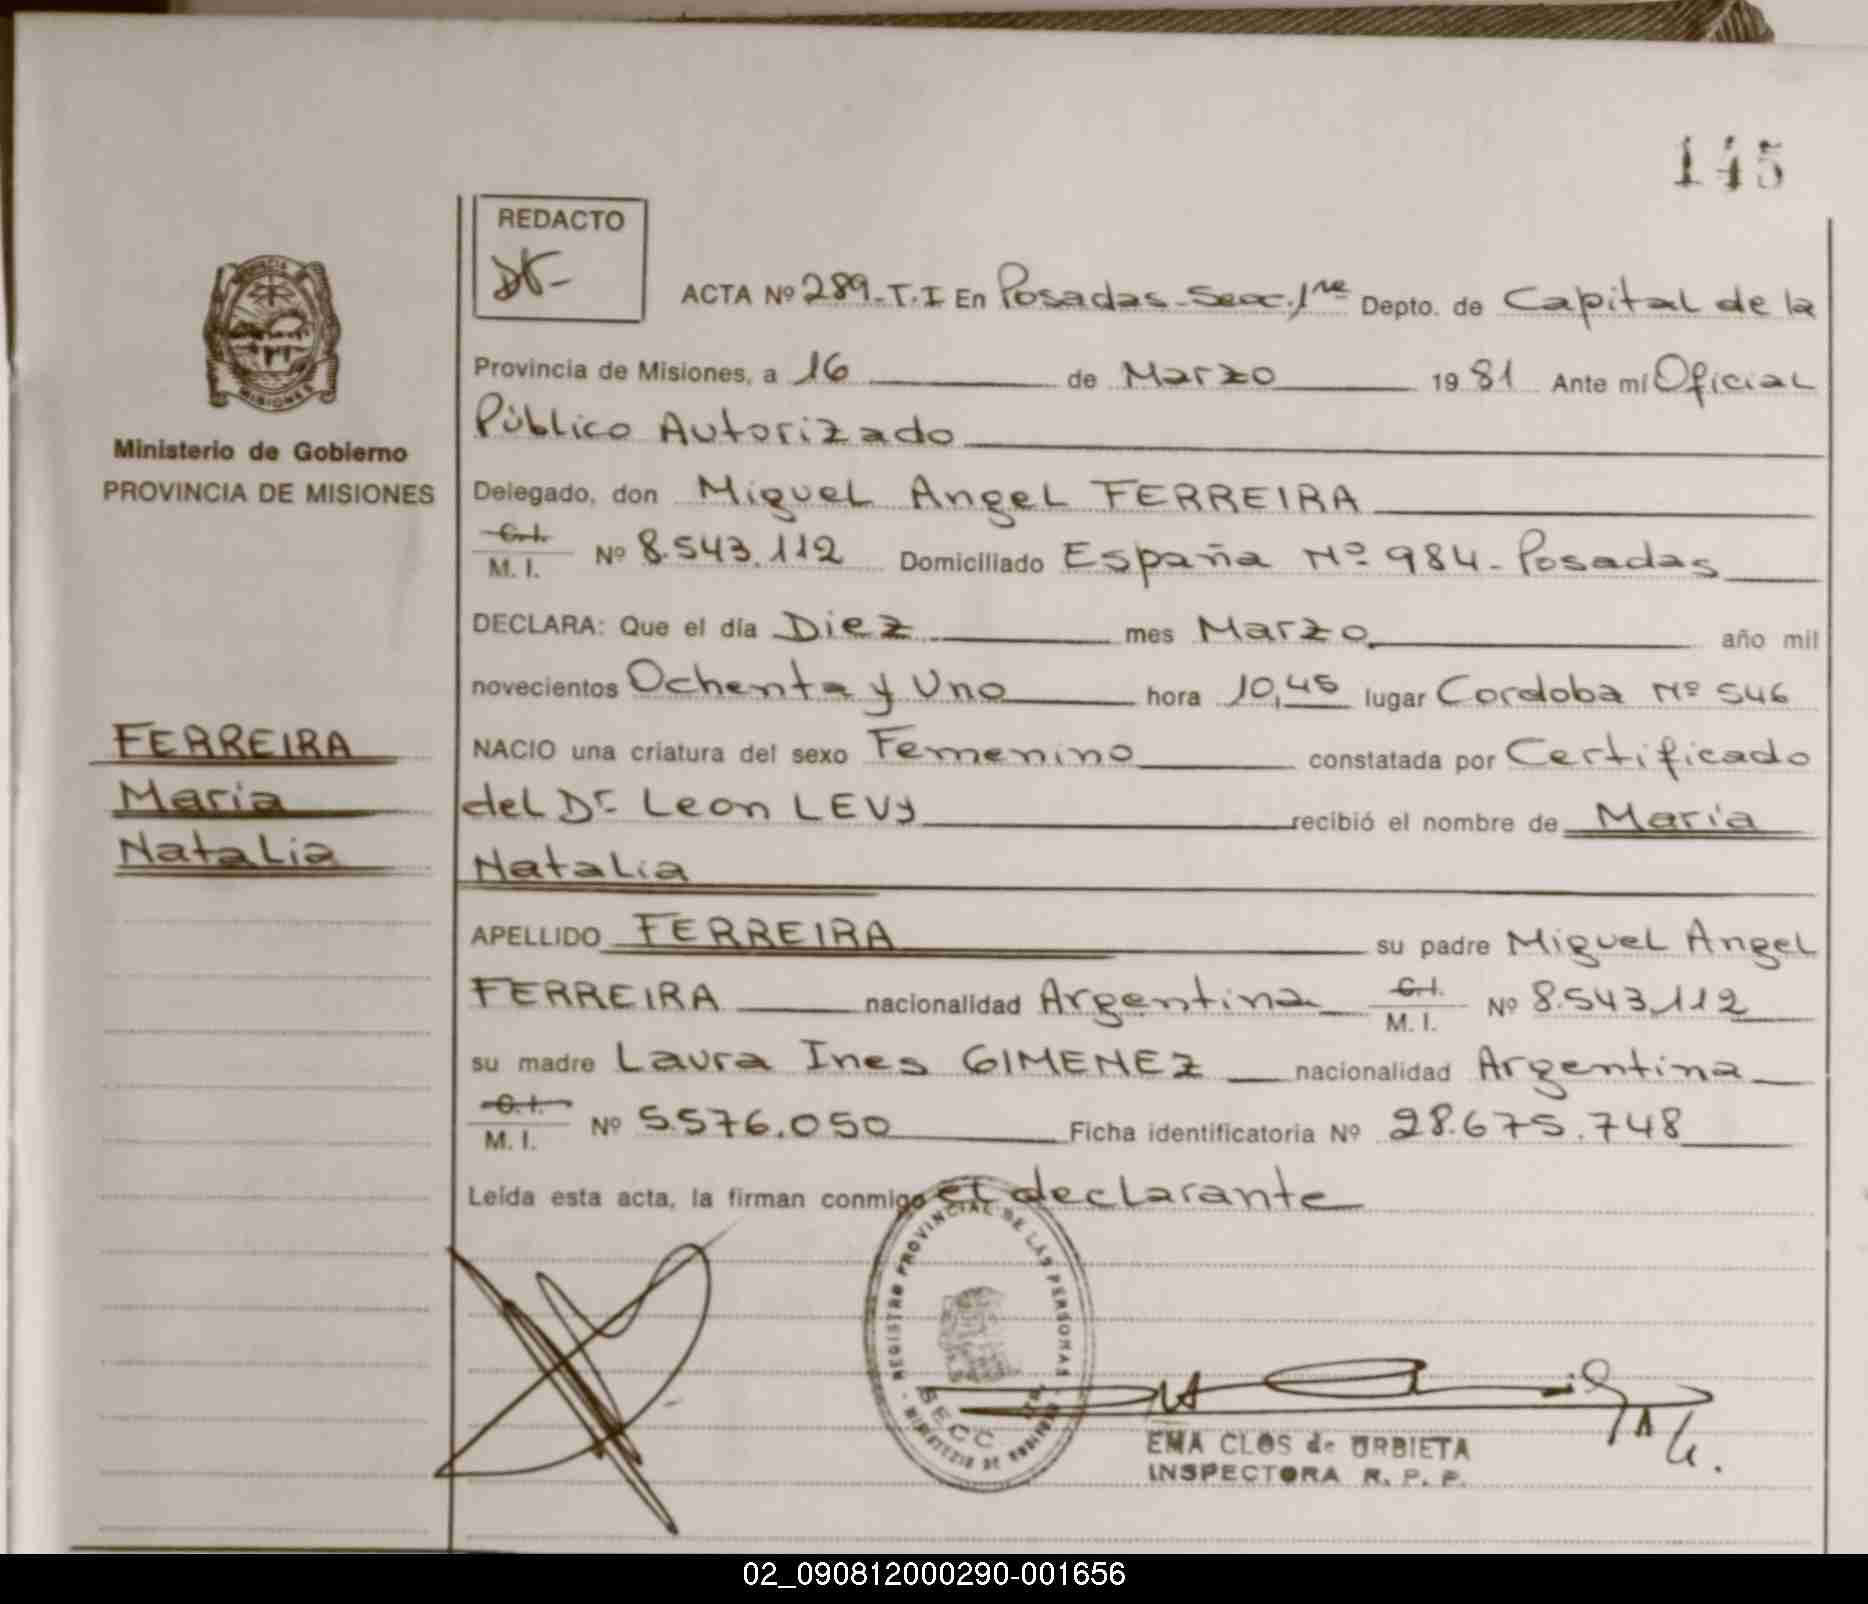 145
REDACTO
ACTA Nº 289-T.I En Posadas-Secc.1ra Depto. de Capital de la
Provincia de Misiones, a 16 de Marzo 1981 Ante mí Oficial
Público Autorizado
Ministerio de Gobierno
PROVINCIA DE MISIONES
Delegado, don Miguel Angel FERREIRA
C.I.
M. I. Nº 8.543.112 Domiciliado España Nº 984-Posadas
DECLARA: Que el día Diez mes Marzo año mil
novecientos Ochenta y Uno hora 10,45 lugar Cordoba Nº 546
FERREIRA
Maria
Natalia
NACIO una criatura del sexo Femenino constatada por Certificado
del Dr. Leon LEVY recibió el nombre de María
Natalia
APELLIDO FERREIRA su padre Miguel Angel
FERREIRA nacionalidad Argentina C.I. M. I. Nº 8.543.112
su madre Laura Ines GIMENEZ nacionalidad Argentina
C.I.
M. I. Nº 5.576.050 Ficha identificatoria Nº 28.675.748
Leída esta acta, la firman conmigo el declarante
REGISTRO PROVINCIAL DE LAS PERSONAS
SECC 1ra.
MINISTERIO DE GOBIERNO
EMA CLOS de URBIETA
INSPECTORA R. P. P.
02_090812000290-001656